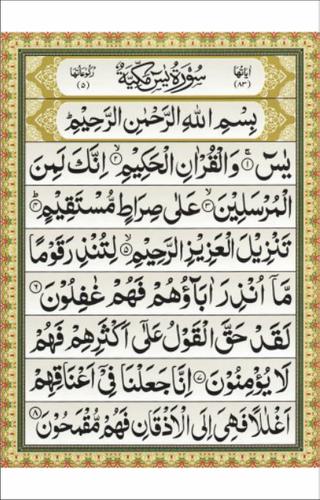 اٰیَاتُهَا (٨٣) سُوْرَةُ یٰسٓ مَكِّیَّةٌ رُكُوْعَاتُهَا (٥)
بِسْمِ اللهِ الرَّحْمٰنِ الرَّحِیْمِ
یٰسٓ ۝١ وَالْقُرْاٰنِ الْحَكِیْمِ ۝٢ اِنَّكَ لَمِنَ
الْمُرْسَلِیْنَ ۝٣ عَلٰی صِرَاطٍ مُّسْتَقِیْمٍ ۝٤
تَنْزِیْلَ الْعَزِیْزِ الرَّحِیْمِ ۝٥ لِتُنْذِرَ قَوْمًا
مَّاۤ اُنْذِرَ اٰبَآؤُهُمْ فَهُمْ غٰفِلُوْنَ ۝٦
لَقَدْ حَقَّ الْقَوْلُ عَلٰۤی اَكْثَرِهِمْ فَهُمْ
لَا یُؤْمِنُوْنَ ۝٧ اِنَّا جَعَلْنَا فِیْۤ اَعْنَاقِهِمْ
اَغْلٰلًا فَهِیَ اِلَی الْاَذْقَانِ فَهُمْ مُّقْمَحُوْنَ ۝٨